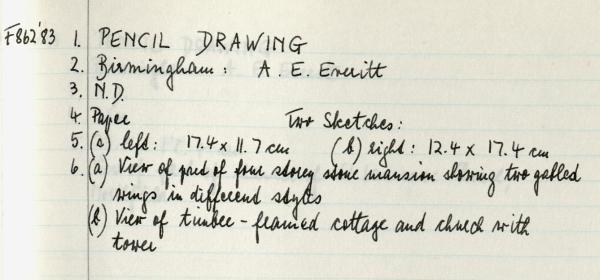 F862'83 1. PENCIL DRAWING
2. Birmingham: A. E. Everitt
3. N.D.
4. Paper Two Sketches:
5. (a) left: 17.4 x 11.7 cm (b) right: 12.4 x 17.4 cm
6. (a) View of part of four storey stone mansion showing two gabled
wings in different styles
(b) View of timber-framed cottage and church with
tower